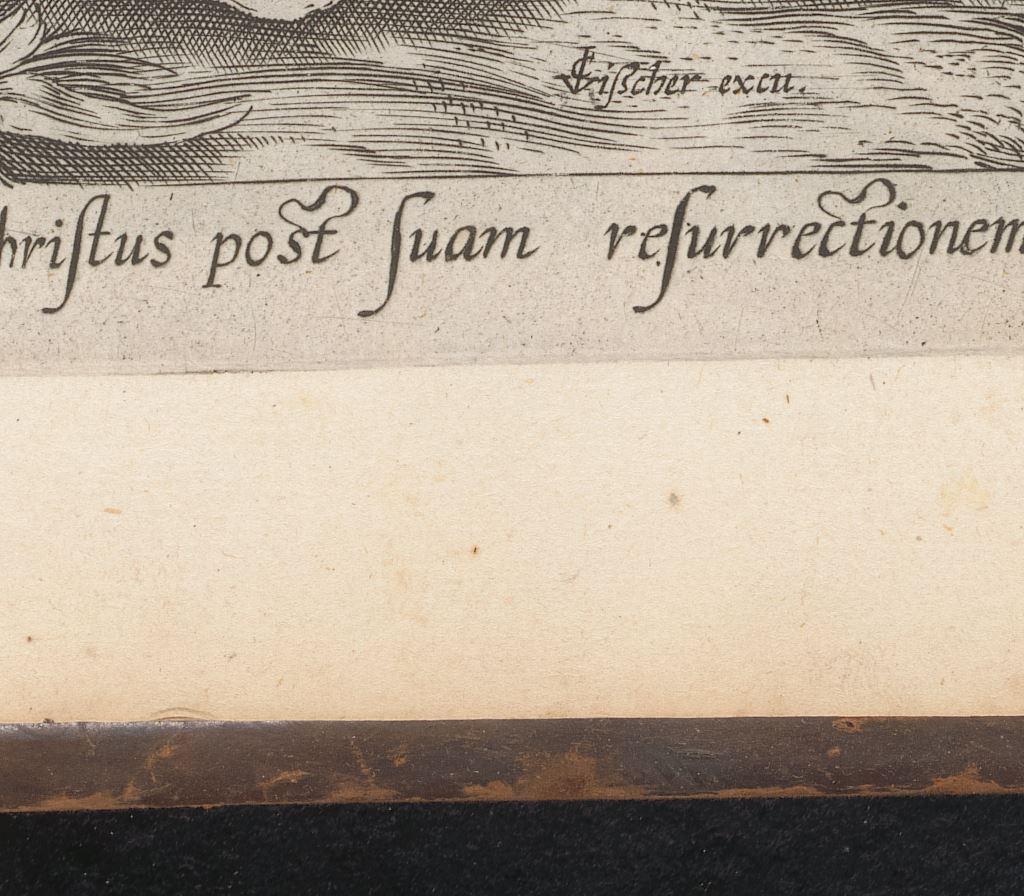 CVisscher excu.
hriſtus poſt ſuam reſurrectionem